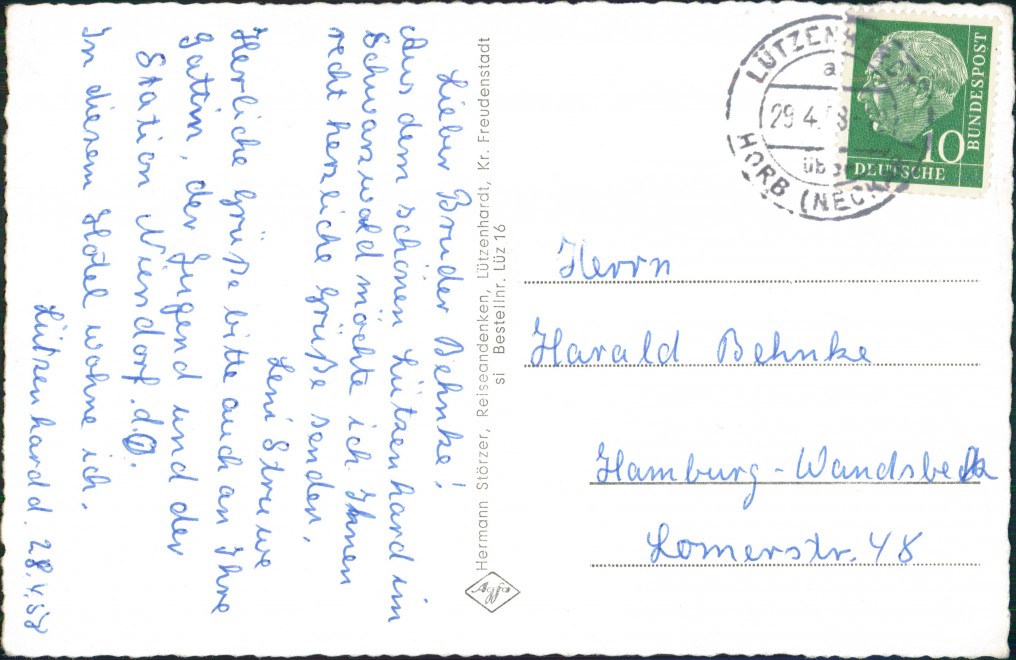 Lieber Bruder Behnke!
Aus dem schönen Lützenhard im
Schwarzwald möchte ich Ihnen
recht herzliche Grüße senden.
Leni Struwe
Herliche Grüße bitte auch an Ihre
Gattin, der Jugend und der
Station Niendorf. d.O.
In diesem Hotel wohne ich.
Lützenhard d. 28.4.58
Hermann Störzer, Reiseandenken, Lützenhardt, Kr. Freudenstadt
si Bestellnr. Lüz 16
Agfa
LÜTZENHARDT
a
29.4.58
über
HORB (NECKAR)
10
DEUTSCHE
BUNDESPOST
Herrn
Harald Behnke
Hamburg-Wandsbeck
Lomerstr. 48